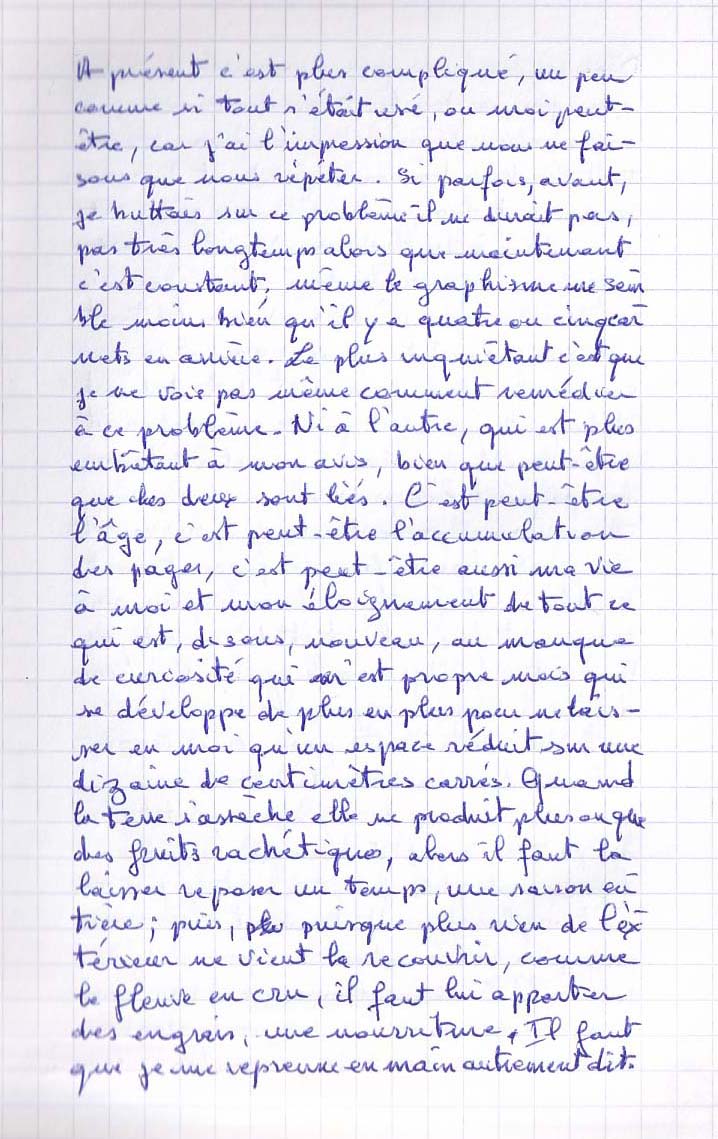 A présent c'est plus compliqué, un peu
comme si tout s'était usé, ou moi peut-
être, car j'ai l'impression que nous ne fai-
sons que nous répéter. Si parfois, avant,
je buttais sur ce problème il ne durait pas,
pas très longtemps alors que maintenant
c'est constant, même le graphisme me sem
ble moins bien qu'il y a quatre ou cinq car
nets en arrière. Le plus inquiétant c'est que
je ne vois pas même comment remédier
à ce problème. Ni à l'autre, qui est plus
embêtant à mon avis, bien que peut-être
que les deux sont liés. C'est peut-être
l'âge, c'est peut-être l'accumulation
des pages, c'est peut-être aussi ma vie
à moi et mon éloignement de tout ce
qui est, disons, nouveau, au manque
de curiosité qui m'est propre mais qui
se développe de plus en plus pour ne lais-
ser en moi qu'un espace réduit sur une
dizaine de centimètres carrés. Quand
la terre s'assèche elle ne produit plus ou que
des fruits rachétiques, alors il faut la
laisser reposer un temps, une saison en
tière ; puis, puisque plus rien de l'ex
térieur ne vient la recouvrir, comme
le fleuve en cru, il faut lui apporter
des engrais, une nourriture. Il faut
que je me reprenne en main autrement dit.